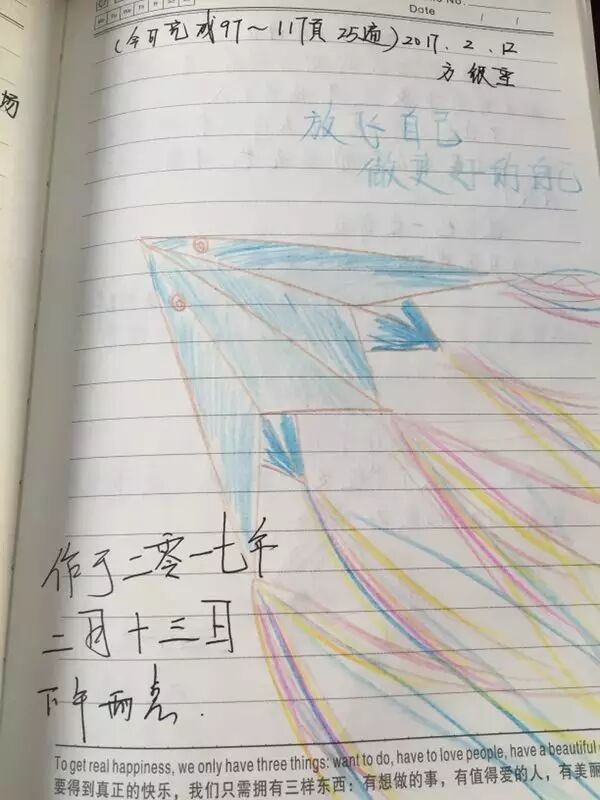 No.
Date / /
(今日完成97～117頁 25遍) 2017.2.12
方
放飞自己
做更好的自己
场
作于二零一七年
二月十三日
下午两点.
To get real happiness, we only have three things: want to do, have to love people, have a beautiful
要得到真正的快乐，我们只需拥有三样东西：有想做的事，有值得爱的人，有美丽